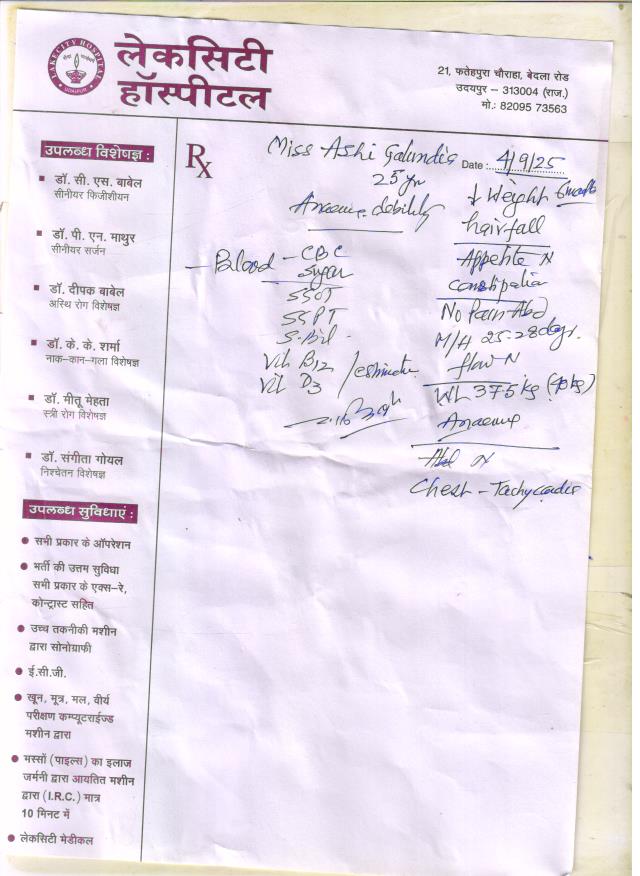 LAKECITY HOSPITAL
UDAIPUR
लेकसिटी
हॉस्पीटल
21, फतेहपुरा चौराहा, बेदला रोड
उदयपुर – 313004 (राज.)
मो.: 82095 73563
उपलब्ध विशेषज्ञ :
डॉ. सी. एस. बाबेल
सीनीयर फिजीशीयन
डॉ. पी. एन. माथुर
सीनीयर सर्जन
डॉ. दीपक बाबेल
अस्थि रोग विशेषज्ञ
डॉ. के. के. शर्मा
नाक-कान-गला विशेषज्ञ
डॉ. मीतू मेहता
स्त्री रोग विशेषज्ञ
डॉ. संगीता गोयल
निश्चेतन विशेषज्ञ
उपलब्ध सुविधाएं :
सभी प्रकार के ऑपरेशन
भर्ती की उत्तम सुविधा
सभी प्रकार के एक्स-रे,
कोन्ट्रास्ट सहित
उच्च तकनीकी मशीन
द्वारा सोनोग्राफी
ई.सी.जी.
खून, मूत्र, मल, वीर्य
परीक्षण कम्प्यूटराईज्ड
मशीन द्वारा
मस्सों (पाइल्स) का इलाज
जर्मनी द्वारा आयतित मशीन
द्वारा (I.R.C.) मात्र
10 मिनट में
लेकसिटी मेडीकल
Rx
Miss Ashi Galundia Date : 4/9/25
25 yr
Anaemia debility
Blood – CBC
Sugar
SGOT
SGPT
S. Bil
Vit B12
Vit D3
/ estimate
↓ Weight 6 month
hairfall
Appetite N
Constipation
No Pain Abd
M/H 25-28 days.
flow N
Wt 37.5 kg (40 kg)
Anaemia
Abd N
Chest – Tachycardia